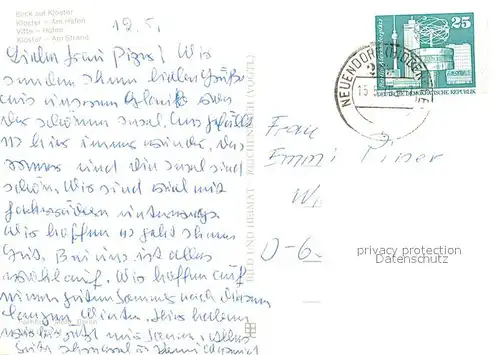 Blick auf Kloster
Kloster - Am Hafen
Vitte - Hafen
Kloster - Am Strand
12.5.
Liebe Frau Piper! Wir
senden Ihnen liebe Grüße
aus unserem Urlaub von
der schönen Insel. Uns gefällt
es hier immer wieder, das
und die Insel sind
schön. Wir sind viel mit
Fahrrädern unterwegs.
Wir hoffen es geht Ihnen
gut. Bei uns ist alles
wohlauf. Wir hoffen auf
einen guten Sommer nach diesem
langen Winter. Hier haben
wir bis jetzt nur Sonne. Alles
BILD UND HEIMAT REICHENBACH (VOGTL)
25
DEUTSCHE DEMOKRATISCHE REPUBLIK
NEUENDORF
Frau
Emmi Piper
D-6
privacy protection
Datenschutz